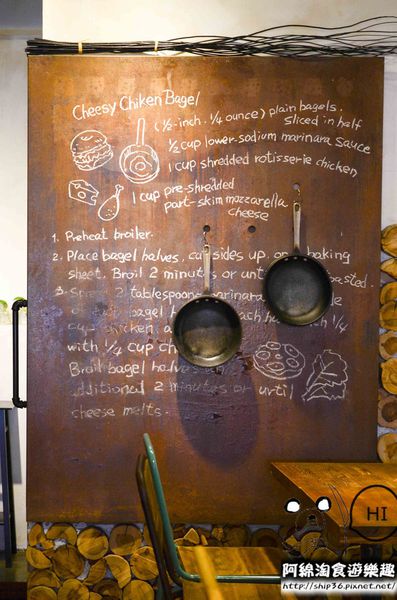 Cheesy Chiken Bagel
(½-inch. ¼ ounce) plain bagels.
sliced in half
½ cup lower-sodium marinara sauce
1 cup shredded rotisserie chicken
1 cup pre-shredded
part-skim mozzarella
cheese
1. Preheat broiler.
2. Place bagel halves, cut sides up, on baking
sheet. Broil 2 minutes or
3. 2 tablespoons marinara
bagel
cup chicken, ¼
with ¼ cup
Broil bagel halves
additional 2 minutes or until
cheese melts.
HI
阿綿淘食遊樂趣
http://ship36.pixnet.net/